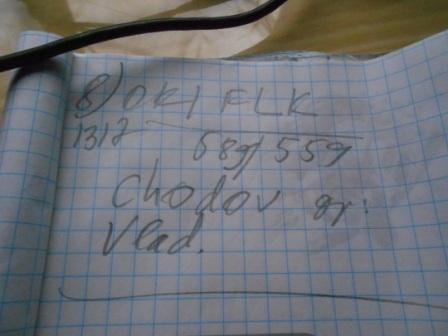 8) OK1FLK
1312 589/559
Chodov qr:
Vlad.